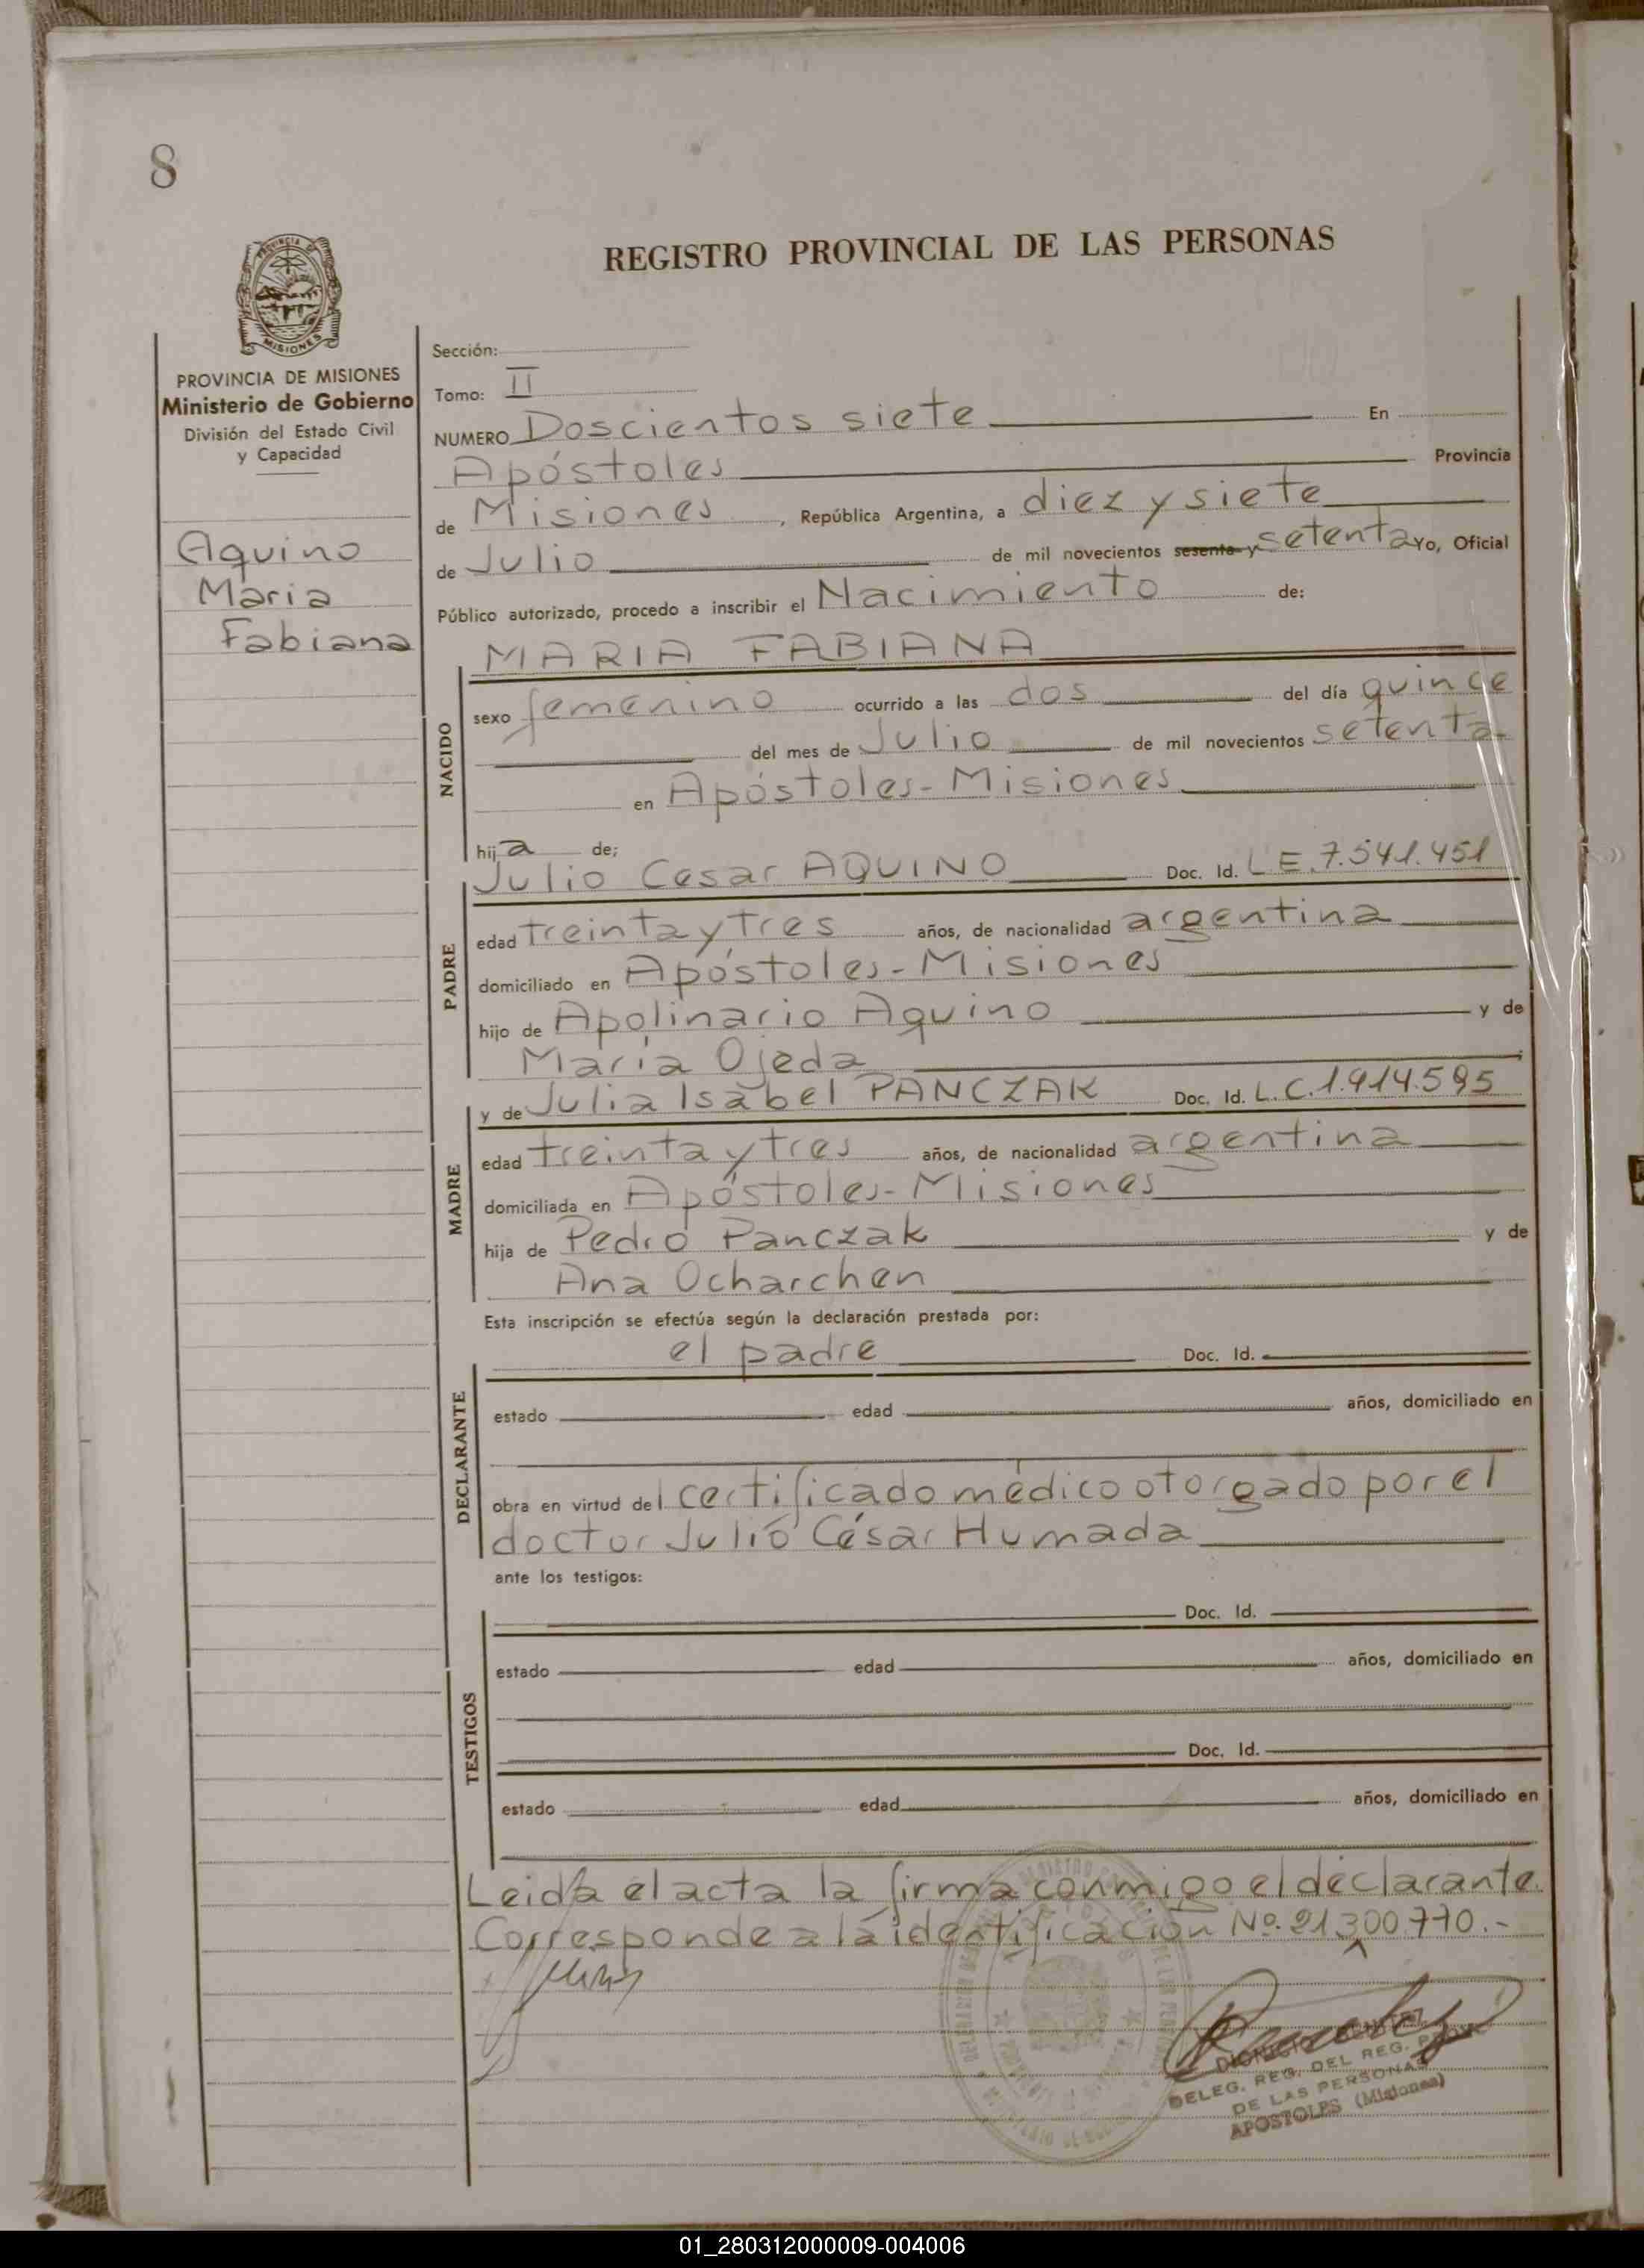 8
REGISTRO PROVINCIAL DE LAS PERSONAS
PROVINCIA DE MISIONES
Ministerio de Gobierno
División del Estado Civil
y Capacidad
Aquino
Maria
Fabiana
Sección:
Tomo: II
NUMERO Doscientos siete En
Apóstoles Provincia
de Misiones, República Argentina, a diez y siete
de Julio de mil novecientos sesenta y setenta Yo, Oficial
Público autorizado, procedo a inscribir el Nacimiento de:
MARIA FABIANA
NACIDO
sexo femenino ocurrido a las dos del día quince
del mes de Julio de mil novecientos setenta
en Apóstoles-Misiones
hija de;
PADRE
Julio Cesar AQUINO Doc. Id. L E. 7.541.451
edad treinta y tres años, de nacionalidad argentina
domiciliado en Apóstoles-Misiones
hijo de Apolinario Aquino y de
María Ojeda
MADRE
y de Julia Isabel PANCZAK Doc. Id. L. C. 1.914.595
edad treinta y tres años, de nacionalidad argentina
domiciliada en Apóstoles-Misiones
hija de Pedro Panczak y de
Ana Ocharchen
Esta inscripción se efectúa según la declaración prestada por:
DECLARANTE
el padre Doc. Id.
estado edad años, domiciliado en
obra en virtud del certificado médico otorgado por el
doctor Julio César Humada
ante los testigos:
TESTIGOS
Doc. Id.
estado edad años, domiciliado en
Doc. Id.
estado edad años, domiciliado en
Leida el acta la firma conmigo el declarante.
Corresponde a la identificación Nº. 21.300.770.-
DELEG. REG. DEL REG. PROV.
DE LAS PERSONAS
APOSTOLES (Misiones)
01_280312000009-004006